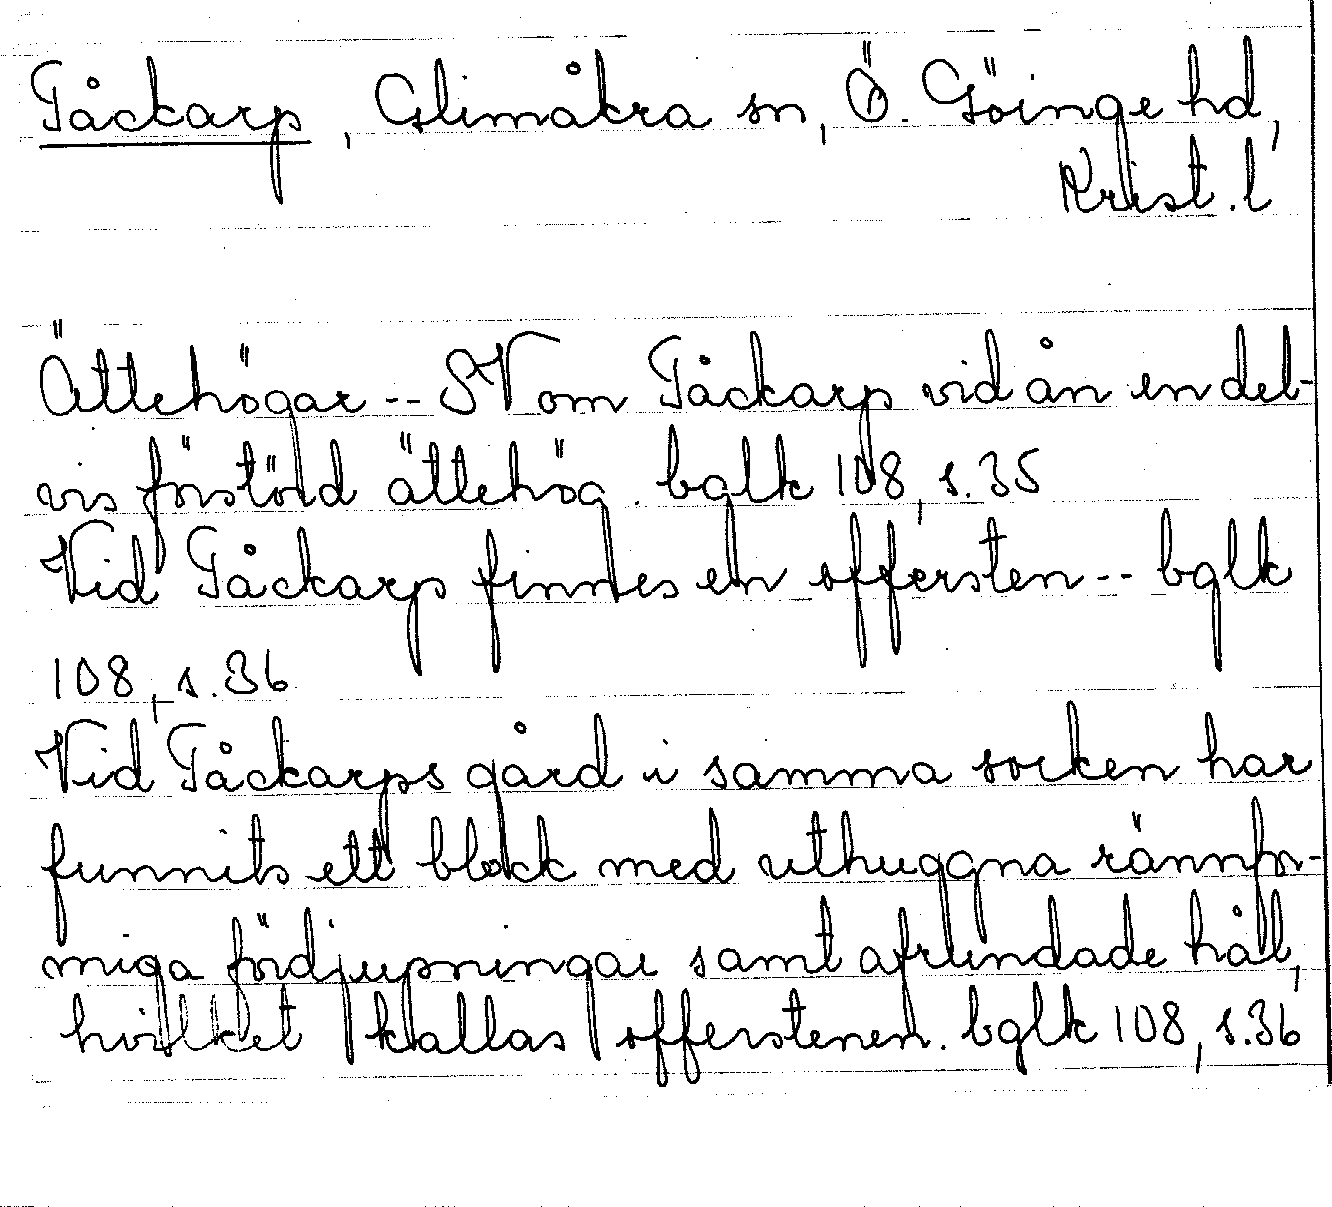 Tåckarp, Glimåkra sn, Ö. Göinge hd,
Krist. l
Ättehögar -- SV om Tåckarp vid ån en del-
vis förstöld ättehög. bglk 108, s. 35
Vid Tåckarp finnes en offersten -- bglk
108, s. 36
Vid Tåckarps gård i samma socken har
funnits ett block med uthuggna rännfor-
miga fördjupningar samt afrundade hål,
hvilket kallas offerstenen. bglk 108, s. 36